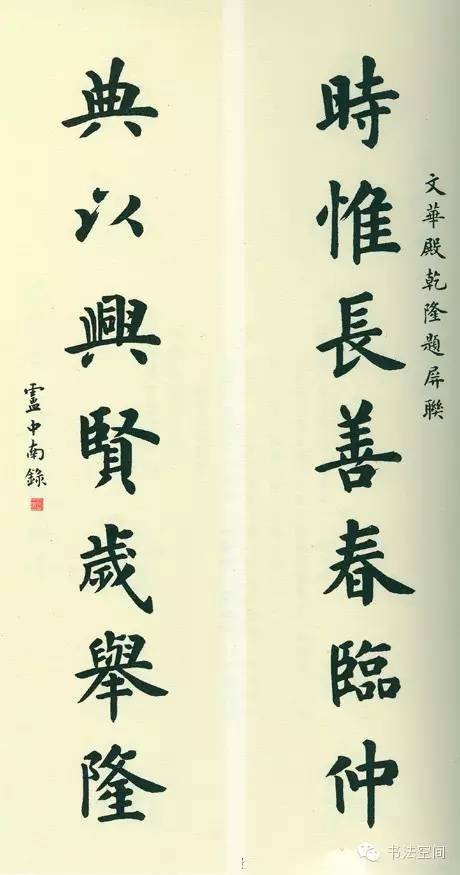 文華殿乾隆題屏聯
時惟長善春臨仲
典以興賢歲舉隆
盧中南錄
书法空间